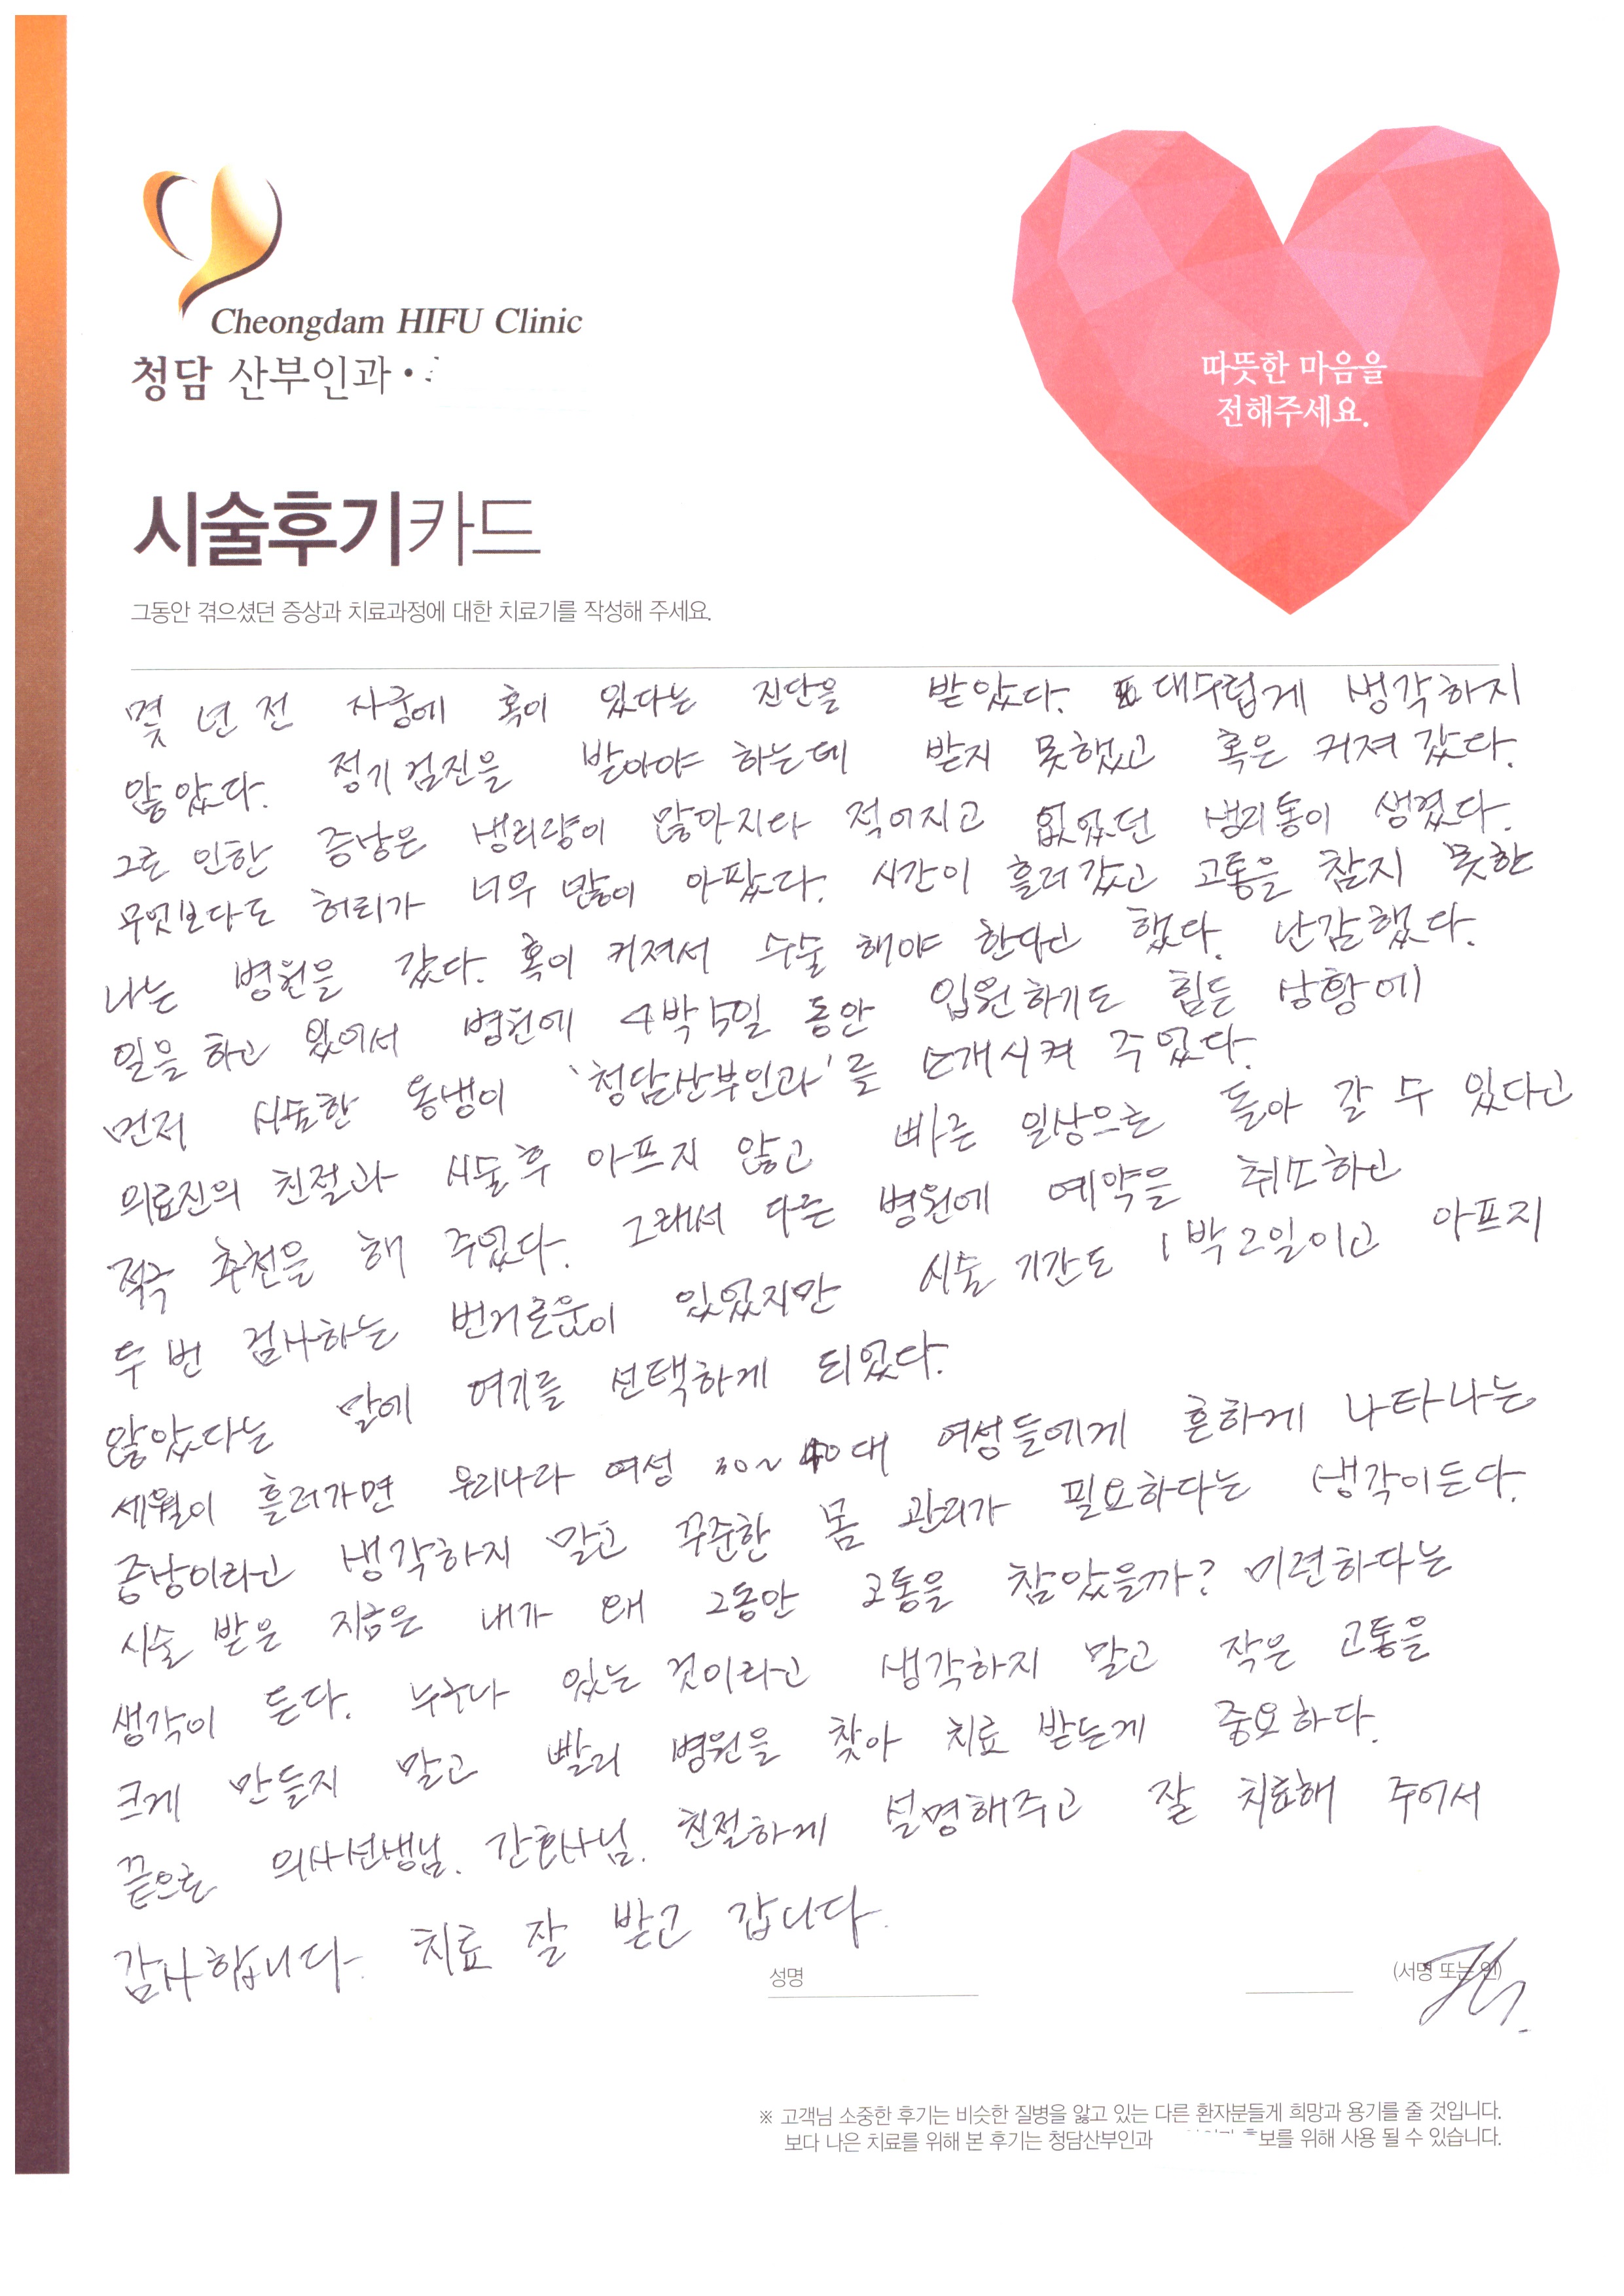 Cheongdam HIFU Clinic
청담 산부인과 •
따뜻한 마음을
전해주세요.
시술후기카드
그동안 겪으셨던 증상과 치료과정에 대한 치료기를 작성해 주세요.
몇 년 전 자궁에 혹이 있다는 진단을 받았다. 대수럽게 생각하지
않았다. 정기검진을 받아야 하는데 받지 못했고 혹은 커져 갔다.
그로 인한 증상은 생리량이 많아지다 적어지고 없었던 생리통이 생겼다.
무엇보다도 허리가 너무 많이 아팠다. 시간이 흘러갔고 고통을 참지 못한
나는 병원을 갔다. 혹이 커져서 수술 해야 한다고 했다. 난감했다.
일을 하고 있어서 병원에 4박 5일 동안 입원하기도 힘든 상황에
먼저 시술한 동생이 '청담산부인과'를 소개시켜 주었다.
의료진의 친절과 시술후 아프지 않고 빠른 일상으로 돌아 갈 수 있다고
적극 추천을 해 주었다. 그래서 다른 병원에 예약을 취소하고
두 번 검사하는 번거로움이 있었지만 시술 기간도 1박 2일이고 아프지
않았다는 말에 여기를 선택하게 되었다.
세월이 흘러가면 우리나라 여성 30~40대 여성들에게 흔하게 나타나는
증상이라고 생각하지 말고 꾸준한 몸 관리가 필요하다는 생각이든다.
시술 받은 지금은 내가 왜 그동안 고통을 참았을까? 미련하다는
생각이 든다. 누구나 있는 것이라고 생각하지 말고 작은 고통을
크게 만들지 말고 빨리 병원을 찾아 치료 받는게 중요하다.
끝으로 의사선생님. 간호사님. 친절하게 설명해주고 잘 치료해 주어서
감사합니다. 치료 잘 받고 갑니다.
성명 (서명 또는 인)
※ 고객님 소중한 후기는 비슷한 질병을 앓고 있는 다른 환자분들게 희망과 용기를 줄 것입니다.
보다 나은 치료를 위해 본 후기는 청담산부인과 보를 위해 사용 될 수 있습니다.